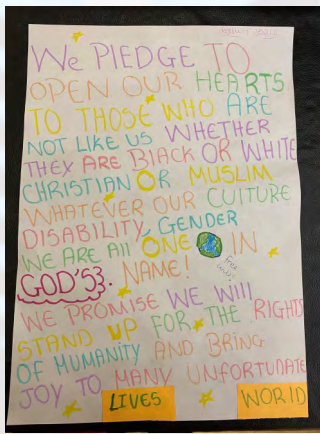 We PlEDGE TO
OPEN OUR HEARTS
TO THOSE WHO ARE
NOT LIKE US WHETHER
THEY ARE BlACK OR WHITE
CHRISTIAN OR MUSLIM
WHATEVER OUR CULTURE
DISABILITY, GENDER
WE ARE All ONE IN
GOD'S NAME!
WE PROMISE WE WIll
STAND UP FOR THE RIGHTS
OF HUMANITY AND BRING
JOY TO MANY UNFORTUNATE
LIVES WORLD